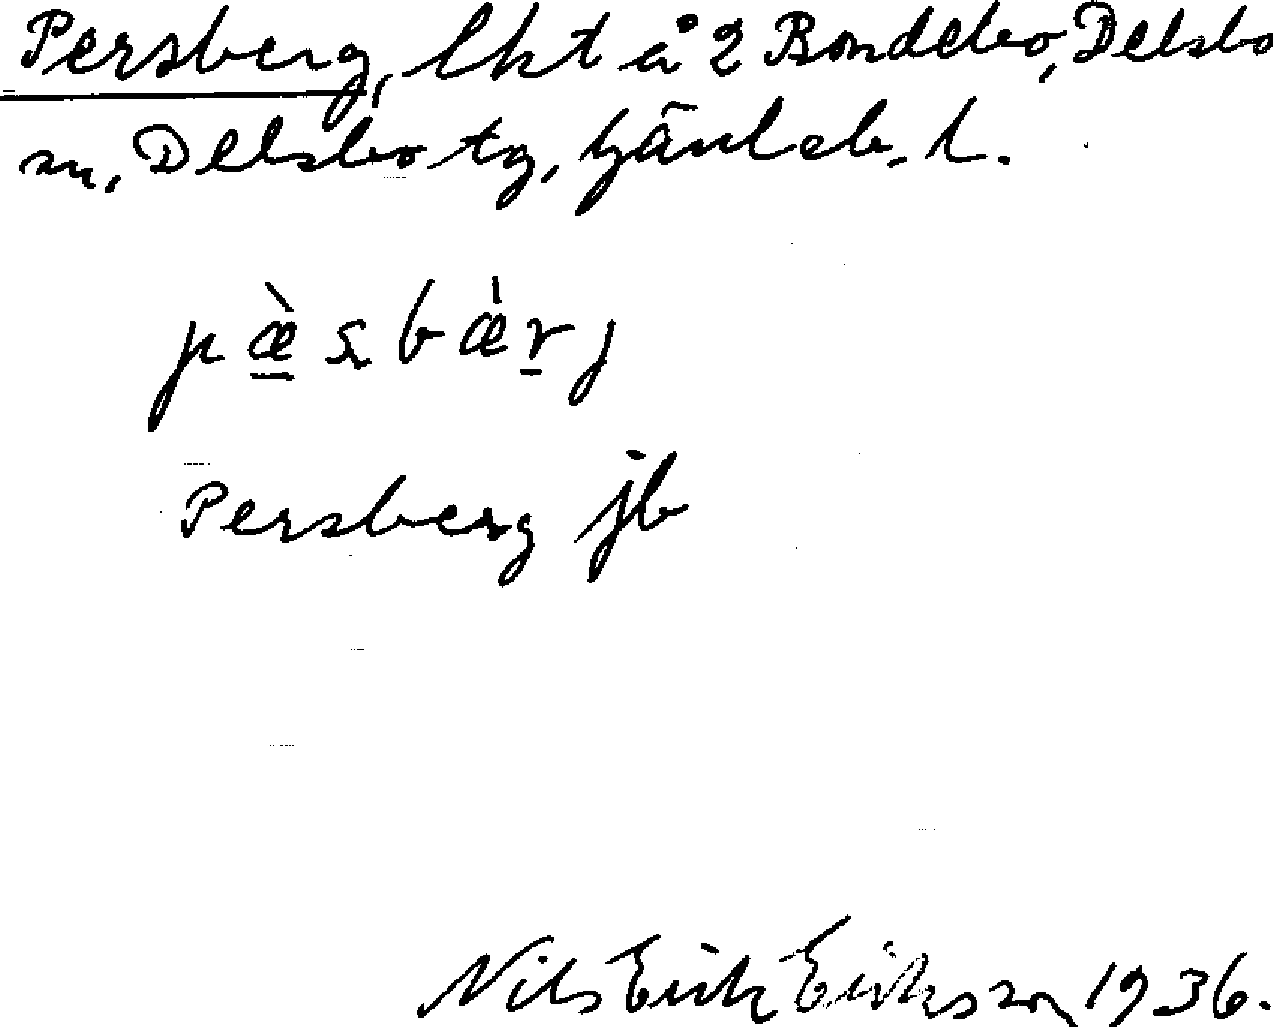 Persberg, lht å 2 Bondebo, Delsbo
sn, Delsbo tg, Gävleb. l.
pæ̠̀ʂbæ̀r̠j
Persberg jb
Nils Erik Eriksson 1936.